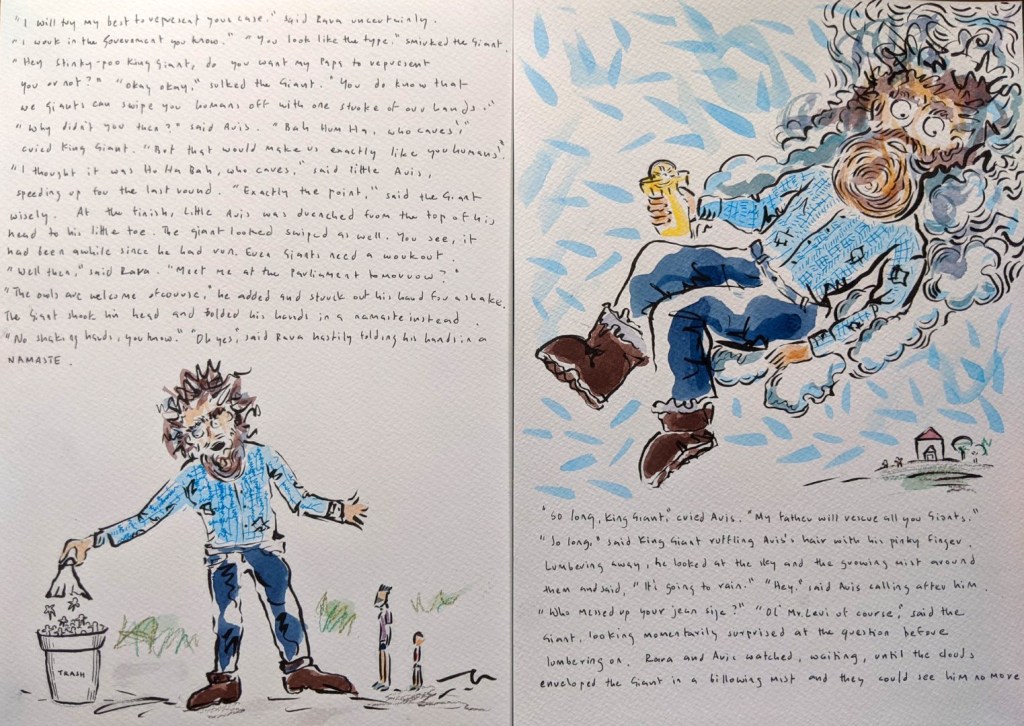 "I will try my best to represent your case." said Rava uncertainly.
"I work in the Government you know." "You look like the type," smirked the Giant.
"Hey stinky-poo King Giant, do you want my Papa to represent
you or not?" "Okay okay," sulked the Giant. "You do know that
we Giants can swipe you humans off with one stroke of our hands."
"Why didn't you then?" said Avis. "Bah Hum Ha, who cares!"
cried King Giant. "But that would make us exactly like you humans".
"I thought it was Ho Ha Bah, who cares," said little Avis,
speeding up for the last round. "Exactly the point," said the Giant
wisely. At the finish, little Avis was drenched from the top of his
head to his little toe. The giant looked swiped as well. You see, it
had been awhile since he had run. Even Giants need a workout.
"Well then," said Rava. "Meet me at the Parliament tomorrow?"
"The owls are welcome ofcourse," he added and struck out his hand for a shake.
The Giant shook his head and folded his hands in a namaste instead.
"No shaking hands, you know." "Oh yes," said Rava hastily folding his hands in a
NAMASTE.
TRASH
"So long, King Giant," cried Avis. "My father will rescue all you Giants."
"So long," said King Giant ruffling Avis's hair with his pinky finger.
Lumbering away, he looked at the sky and the growing mist around
them and said, "It's going to rain." "Hey," said Avis calling after him.
"Who messed up your jean size?" "Ol' Mr. Levi of course," said the
Giant, looking momentarily surprised at the question before
lumbering on. Rava and Avis watched, waiting, until the clouds
enveloped the Giant in a billowing mist and they could see him no more